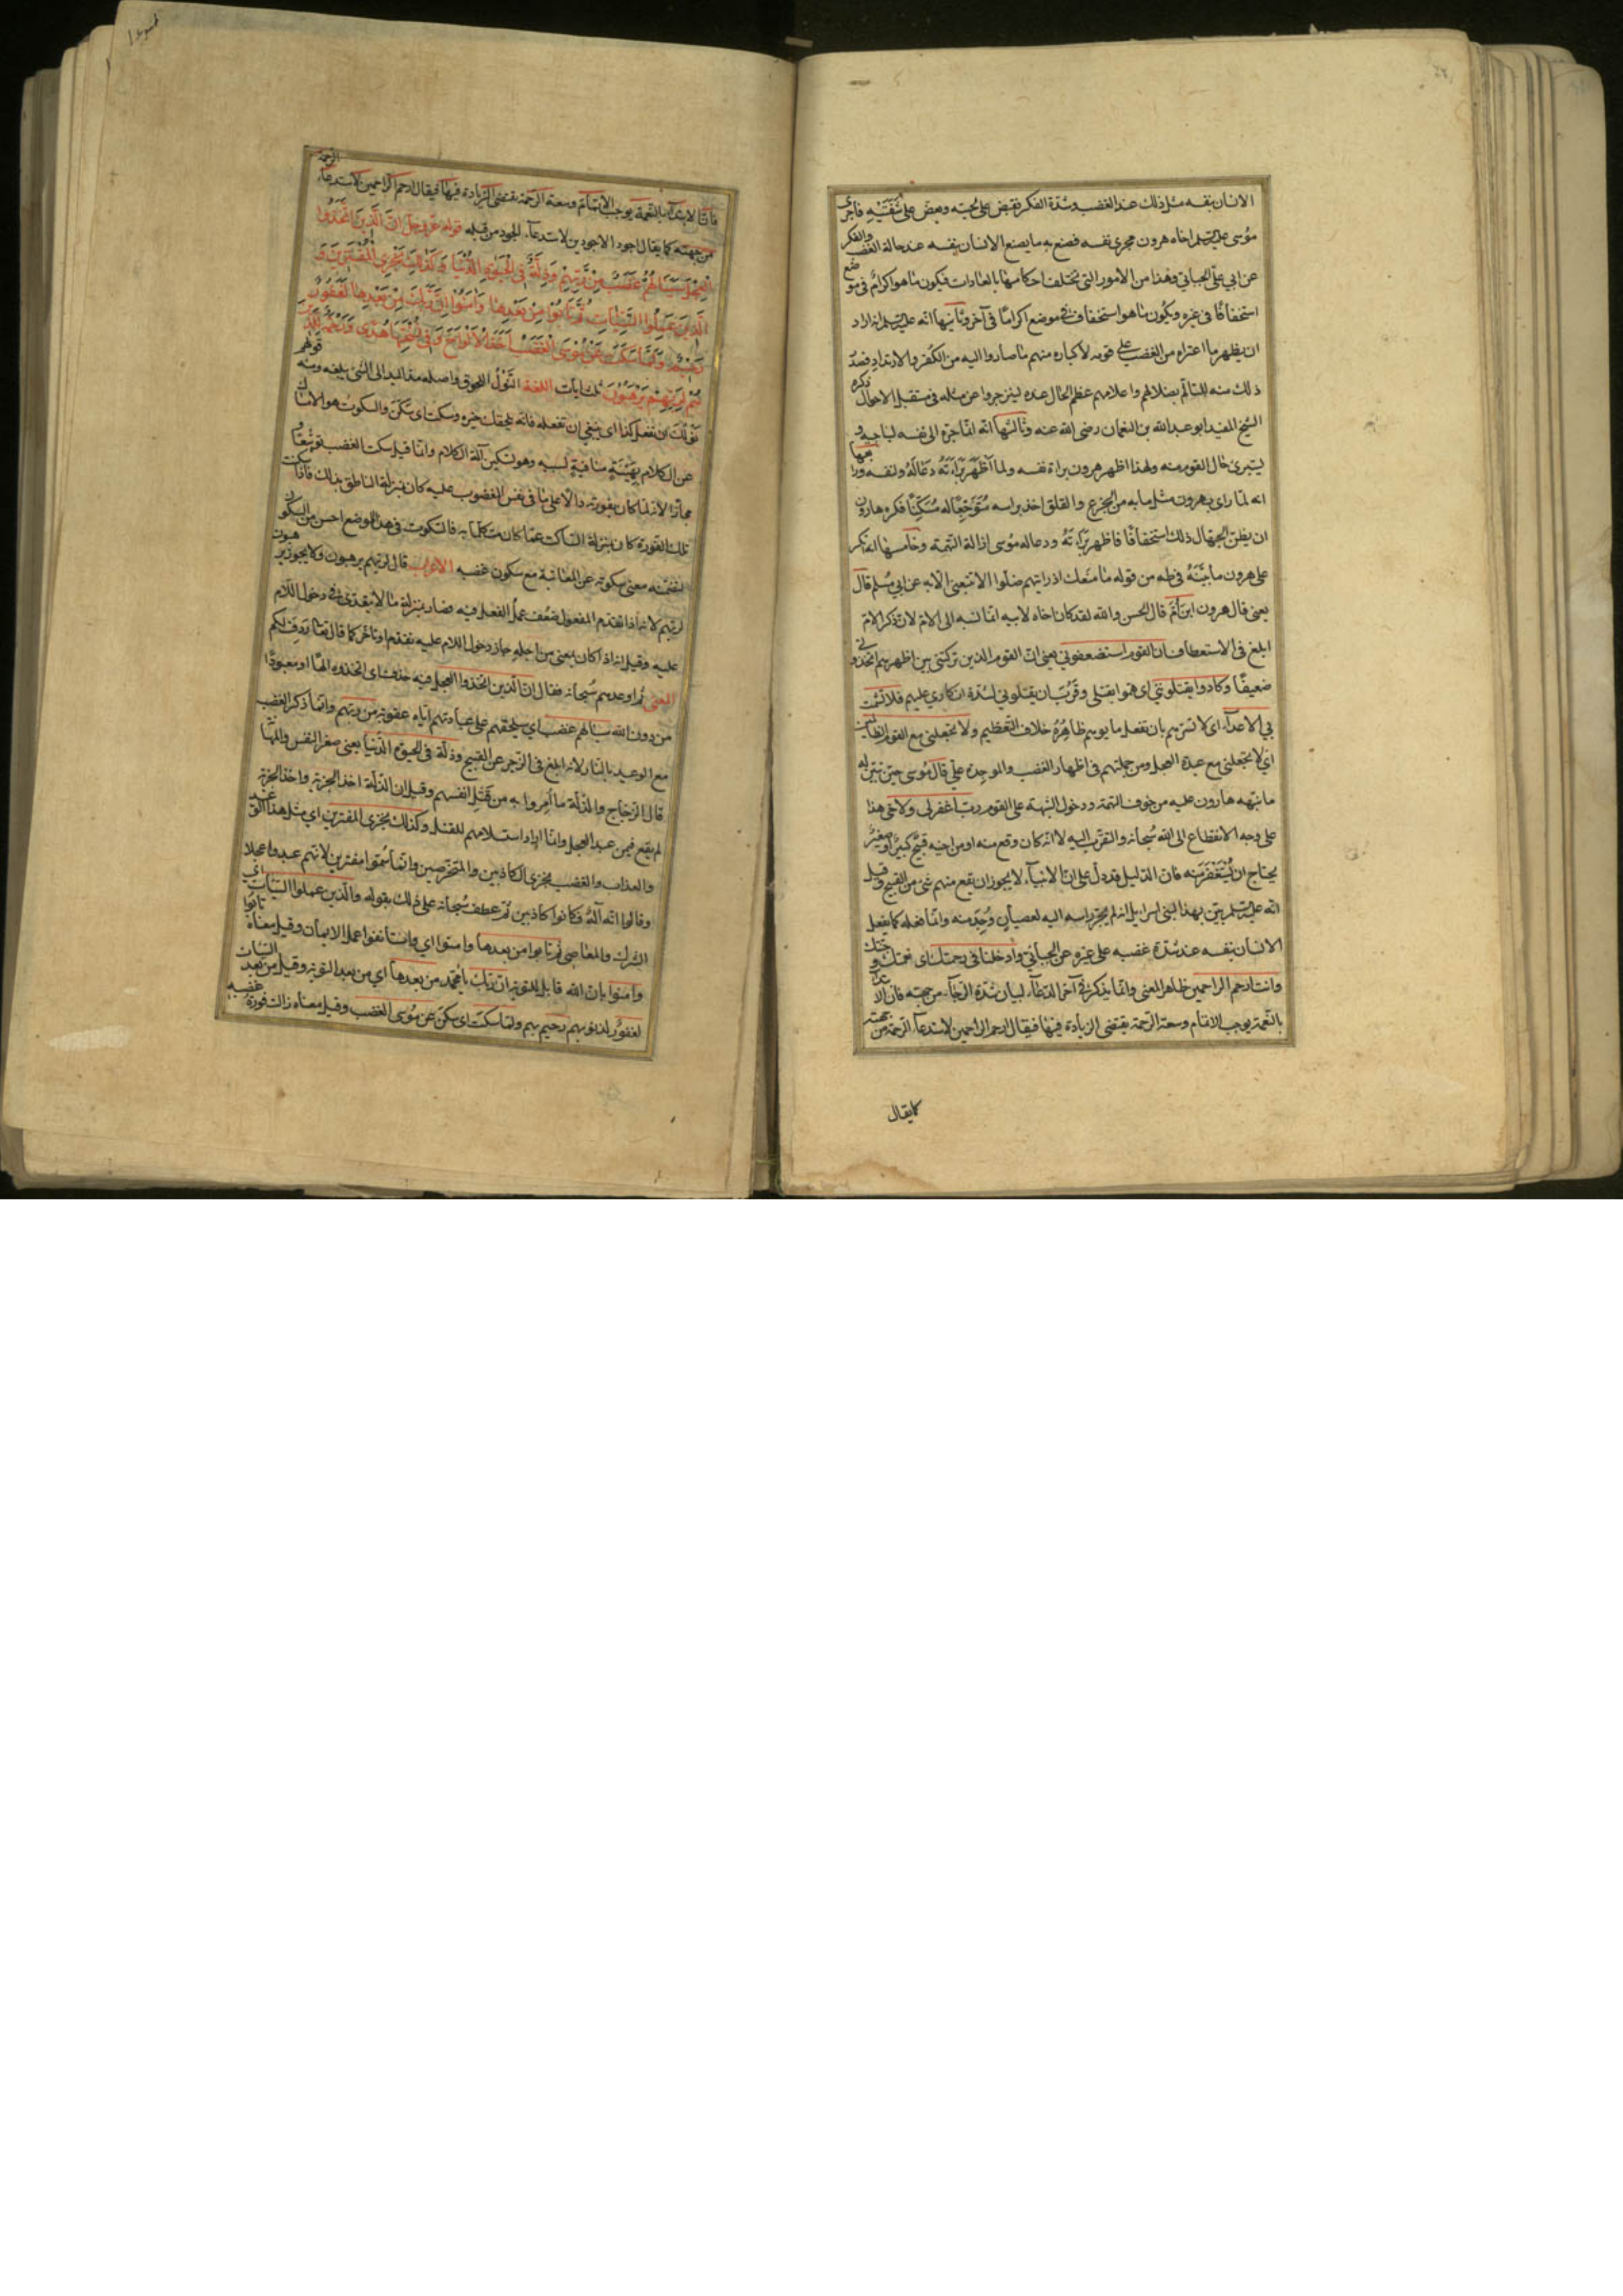 الانسان بنفسه مثل ذلك عند الغضب وشدّة الفكر فيقبض على لحيته ويعضّ على شفتيه فاجرى
موسى عليه السلم اخاه هرون مجرى نفسه فصنع به ما يصنع الانسان بنفسه عند حالة الغضب والفكر
عن ابي علي الجبائي وهذا من الامور التى تختلف احكامها بالعادات فيكون ما هو اكرام فى موضع
استخفافًا فى غيره ويكون ما هو استخفاف فى موضع اكرامًا فى آخر وثانيها انه عليه السلم اراد
ان يظهر ما اعتراه من الغضب على قومه لاكباره منهم ما صاروا اليه من الكفر والارتداد فصدر
ذلك منه للتألّم بضلالهم واعلامهم عظم الحال عنده لينزجروا عن مثله فى مستقبل الاحوال ذكره
الشيخ المفيد ابو عبد الله بن النعمان رضى الله عنه وثالثها انه انما جرّه الى نفسه ليناجيه و
يستبرئ حال القوم منه ولهذا اظهر هرون براءة نفسه ولما اظهر براءته دعا له ولنفسه ورابعها
انه لما راى بهرون مثل ما به من الجزع والقلق اخذ براسه متوجّعًا له مسكّنًا فكره هارون
ان يظن الجهال ذلك استخفافًا فاظهر براءته ودعا له موسى ازالة التهمة وخامسها انه انكر
على هرون ما بيّنه فى طه من قوله ما منعك اذ رايتهم ضلّوا الا تتبعن الآية عن ابي مسلم قال
يعنى قال هرون ابن امّ قال الحسن والله لقد كان اخاه لابيه وامه انما نسبه الى الام لان ذكر الام
ابلغ فى الاستعطاف ان القوم استضعفوني يعنى ان القوم الذين تركتنى بين اظهرهم اتخذونى
ضعيفًا وكادوا يقتلونني اى همّوا بقتلى وقرب ان يقتلوني لشدّة انكاري عليهم فلا تشمت
بي الاعداء اى لا تسرّهم بان تفعل ما يوهم ظاهره خلاف التعظيم ولا تجعلني مع القوم الظالمين
اي لا تجعلنى مع عبدة العجل ومن جملتهم فى اظهار الغضب والموجدة عليّ قال موسى حين تبيّن له
ما نبّهه هارون عليه من خوف التهمة ودخول الشبهة على القوم رب اغفر لى ولاخى هذا
على وجه الانقطاع الى الله سبحانه والتقرّب اليه لا انه كان وقع منه او من اخيه قبيح كبير او صغير
يحتاج ان يستغفر منه فان الدليل قد دلّ على ان الانبياء لا يجوز ان يقع منهم شئ من القبيح وقيل
انه عليه السلم بيّن بهذا لبنى اسرائيل انه لم يجرّ راسه اليه لعصيان وجد منه وانما فعله كما يفعل
الانسان بنفسه عند شدّة غضبه على غيره عن الجبائي وادخلنا فى رحمتك اى نعمتك وجنتك
وانت ارحم الراحمين ظاهر المعنى وانما يذكر فى آخر الدعاء لبيان شدّة الرجاء من جهته فان الابتداء
بالنعمة يوجب الاتمام وسعة الرحمة يقتضى الزيادة فيها فيقال ارحم الراحمين لاستدعاء الرحمة من جهته
كما يقال
فان الابتداء بالنعمة يوجب الاتمام وسعة الرحمة يقتضى الزيادة فيها فيقال ارحم الراحمين لاستدعاء الرحمة
من جهته كما يقال اجود الاجودين لاستدعاء الجود من قبله قوله عز وجل ان الذين اتخذوا
العجل سينالهم غضب من ربهم وذلة فى الحيوة الدنيا وكذلك نجزي المفترين و
الذين عملوا السيئات ثم تابوا من بعدها وآمنوا ان ربك من بعدها لغفور
رحيم ولما سكت عن موسى الغضب اخذ الالواح وفى نسختها هدى ورحمة للذين
هم لربهم يرهبون ثلث آيات اللغة النول اللحوق واصله مدّ اليد الى الشئ يبلغه ومنه قولهم
نولك ان تفعل كذا اى ينبغي ان تفعله فانه يلحقك خيره وسكت اى سكن والسكوت هو الامساك
عن الكلام بهيئة منافية لسببه وهو تسكين آلة الكلام وانما قيل سكت الغضب توسّعًا و
مجازًا لانه لما كان بفورته دالًا على ما فى نفس المغضوب عليه كان بمنزلة الناطق بذلك فاذا سكنت
تلك الفورة كان بمنزلة الساكت عما كان متكلمًا به فالسكوت فى هذا الموضع احسن من السكون
لتضمّنه معنى سكوته عن المعاتبة مع سكون غضبه الاعراب قال لربهم يرهبون ولا يجوز يرهبون
لربهم لانه اذا تقدم المفعول ضعف عمل الفعل فيه فصار بمنزلة ما لا يتعدى فى دخول اللام
عليه وقيل انه اذا كان بمعنى من اجله جاز دخول اللام عليه تقدم او تاخر كما قال تعالى ردف لكم
المعنى ثم اوعدهم سبحانه فقال ان الذين اتخذوا العجل فيه حذف اى اتخذوه الهًا او معبودًا
من دون الله سينالهم غضب اي سيلحقهم على عبادتهم اياه عقوبة من ربهم وانما ذكر الغضب
مع الوعيد بالنار لانه ابلغ فى الزجر عن القبيح وذلة فى الحيوة الدنيا يعنى صغر النفس والمهانة
قال الزجاج والذلة ما امروا به من قتل انفسهم وقيل ان الذلة اخذ الجزية واخذ الجزية
لم يقع فيمن عبد العجل وانما اراد استسلامهم للقتل وكذلك نجزى المفترين اي مثل هذا الوعيد
والعذاب والغضب نجزى الكاذبين والمتخرصين وانما سمّوا مفترين لانهم عبدوا عجلا
وقالوا انه آله فكانوا كاذبين ثم عطف سبحانه على ذلك بقوله والذين عملوا السيئات اي
الشرك والمعاصى ثم تابوا من بعدها وامنوا اي واستانفوا عمل الايمان وقيل معناه تابوا
وآمنوا بان الله قابل للتوبة ان ربك يا محمد من بعدها اي من بعد التوبة وقيل من بعد السيئات
لغفور لذنوبهم رحيم بهم ولما سكت اى سكن عن موسى الغضب وقيل معناه زالت فورة غضبه